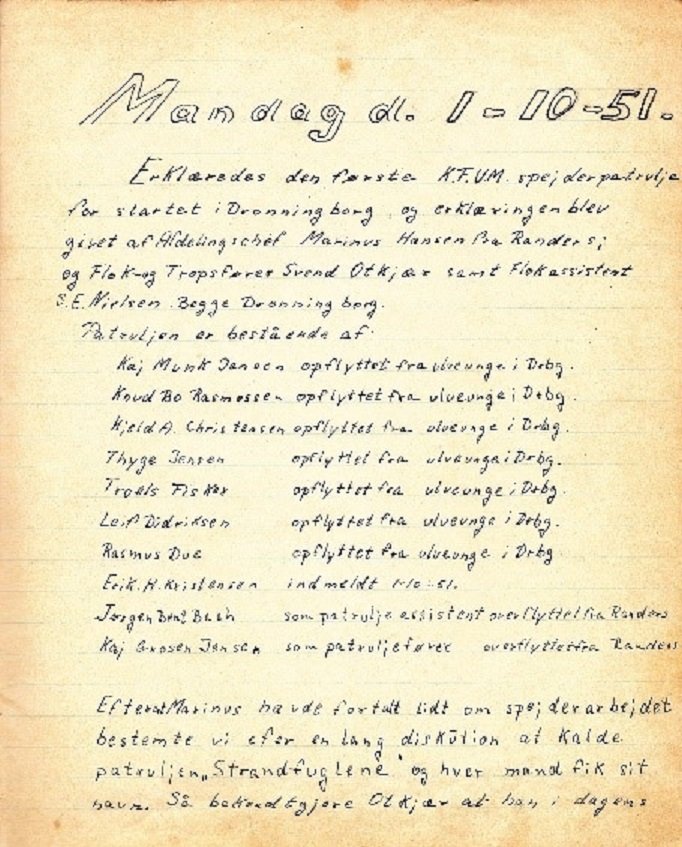 Mandag d. 1-10-51.
Erklæredes den første K.F.U.M. spejderpatrulje
for startet i Dronningborg, og erklæringen blev
givet af Afdelingschef Marinus Hansen fra Randers;
og Flok-og Tropsfører Svend Otkjær samt Flokassistent
S.E. Nielsen. Begge Dronningborg.
Patruljen er bestående af
Kaj Munk Jensen opflyttet fra ulveunge i Drbg.
Knud Bo Rasmussen opflyttet fra ulveunge i Drbg.
Kjeld A. Christensen opflyttet fra ulveunge i Drbg.
Thyge Jensen opflyttet fra ulveunge i Drbg.
Troels Fisker opflyttet fra ulveunge i Drbg.
Leif Didriksen opflyttet fra ulveunge i Drbg.
Rasmus Due opflyttet fra ulveunge i Drbg.
Erik. H. Kristensen indmeldt 1-10-51.
Jørgen Bent Bach som patrulje assistent overflyttet fra Randers
Kaj Jensen som patruljefører overflyttet fra Randers
Efterat Marinus havde fortalt lidt om spejderarbejdet
bestemte vi efer en lang diskution at Kalde
patruljen „Strandfuglene" og hver mand fik sit
navn. Så bekendtgjore Otkjær at han i dagens